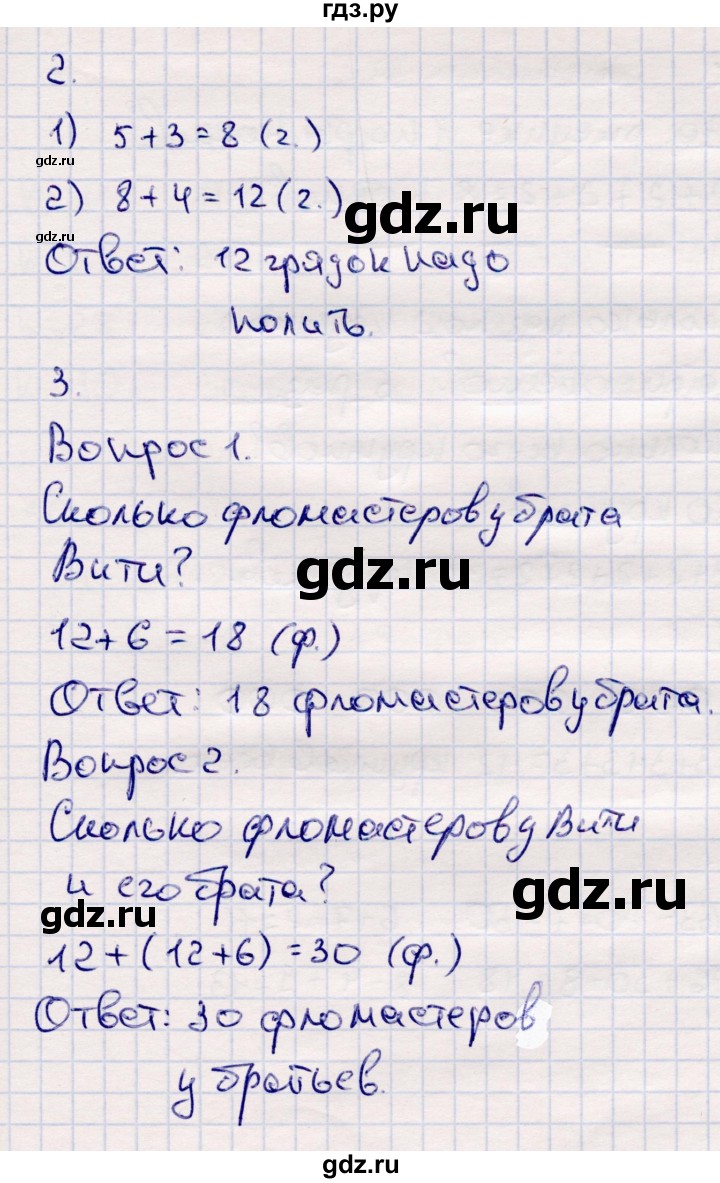 гдз.ру
2.
1) 5+3=8 (г.)
gdz.ru
2) 8+4=12 (г.)
gdz.ru
gdz.ru
Ответ: 12 грядок надо
полить.
3.
Вопрос 1.
Сколько фломастеров у брата
Вити?
gdz.ru
12+6=18 (ф.)
Ответ: 18 фломастеров у брата.
Вопрос 2.
Сколько фломастеров у Вити
и его брата?
gdz.ru
gdz.ru
12+(12+6)=30 (ф.)
Ответ: 30 фломастеров
у братьев.
gdz.ru